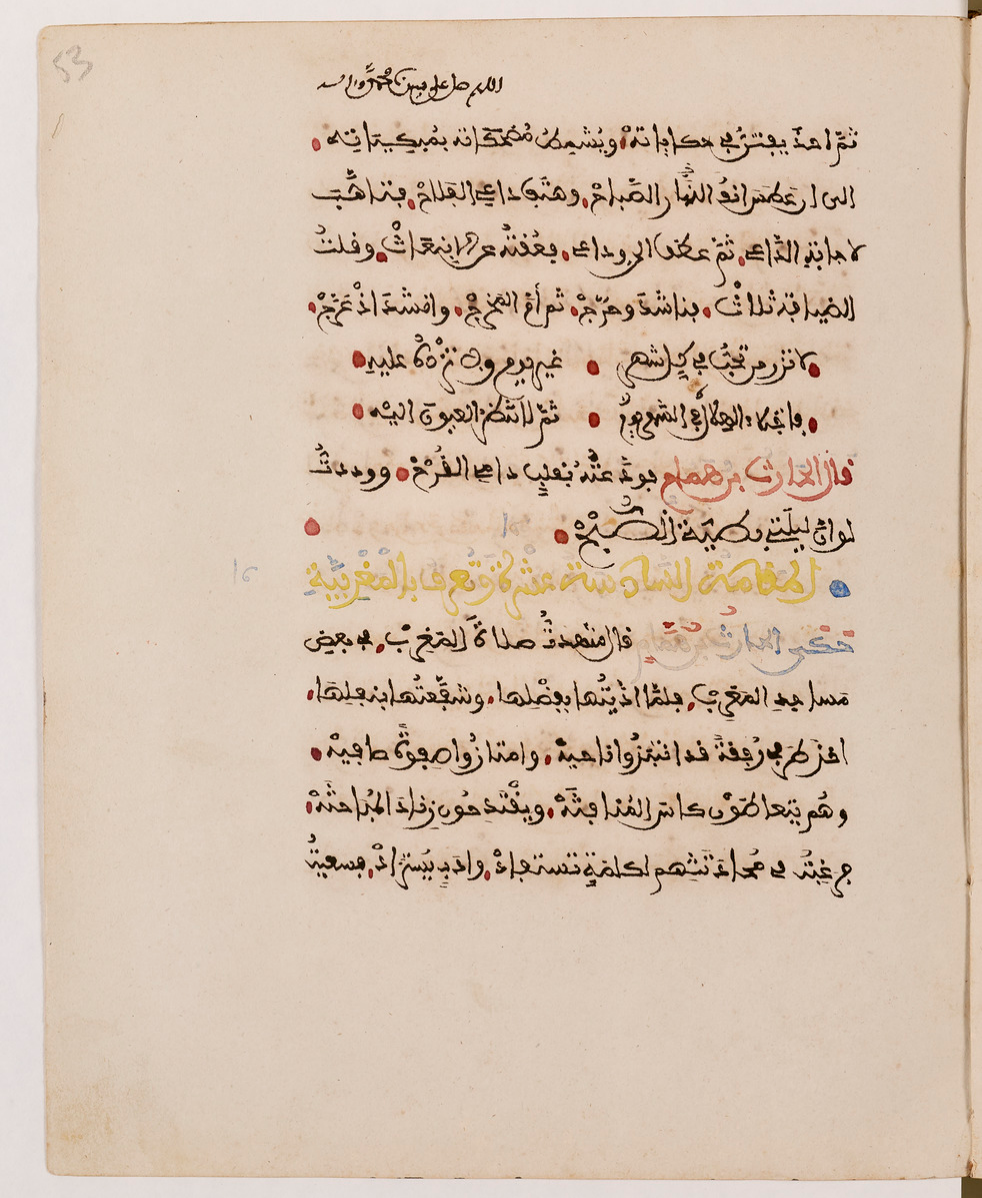 53
اللهم صل على سيدنا محمد وآله
ثمّ اخذ يفتنّ في حكاياته، ويُشمِطُ مُضحكاته بمُبكياته
الى ان عطس انفُ الصّباحْ، وهتف داعي الفلاحْ، فتاهّبَ
لاجابةِ الدّاعي، ثمّ عطف الى وداعي، فعُقتُه عن الانبعاثْ، وقلتُ
الضيافة ثلاثْ، فناشد وحرّجْ، ثم أمّ المخرجْ، وانشد اذ عرّجْ،
لا تزر من تحبّ في كل شهر غير يوم ولا تزدْهُ عليه
فاجتلاء الهلال في الشهر يومٌ ثمّ لا تنظر العيون اليه
قال الحارث بن همام فودّعتُه بقلبٍ دامي القُرْح، ووددتُ
لو انّ ليلتي بطيئةُ الصُّبْحْ
16 المقامة السّادسة عشرة وتُعرف بالمغربيّة
حكى الحارثُ بن همّام قال شهدتُ صلاةَ المغربْ، في بعض
مساجدِ المغربْ، فلمّا ادّيتُها بفضلها، وشفّعتُها بنفلها،
اخذ طرفي رُفقةً قد انتبذُوا ناحيهْ، وامتازُوا صفوةً صافيهْ
وهُم يتعاطَوْن كاسَ المُنافثهْ، ويقْتدحُون زنادَ المُباحثهْ،
فرغبتُ في مُحادثتهم لكلمةٍ تستفادْ، وادبٍ يُستزادْ، فسعيتُ